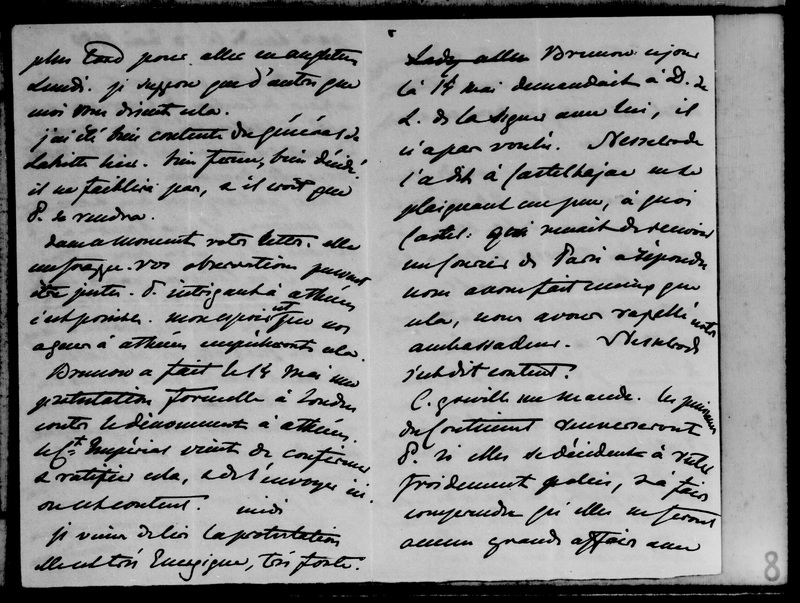 plus tard pour aller en angleterre
Lundi. je suppose que d'autres que
moi vous disent cela.
j'ai été bien contente du général de
Lahitte hier. bien ferme, bien décidé.
il ne faiblira pas, & il croit que
P. se rendra.
dans ce moment votre lettre. elle
me frappe. vos observations peuvent
être justes. P. intrigant à athènes
c'est possible. mon espoir est que nos
agens à athènes empêcheront cela.
Brunow a fait le 14 mai une
protestation formelle à Londres
contre le dénouement à athènes.
le Ct Impérial vient de confirmer
& ratifier cela, & de l'envoyer ici.
on est content. midi
je viens de lire la protestation
elle est très Energique, très forte.
Brunow ce jour
là 14 mai demandait à D. de
L. de la signer avec lui, il
n'a pas voulu. Nesselrode
l'a dit à Castelbajac en se
plaignant un peu, à quoi
Castel: qui venait de recevoir
un Courier de Paris a répondu
nous avons fait mieux que
cela, nous avons rappelé notre
ambassadeur. Nesselrode
s'est dit content.
C. greville me mande. les puissances
du Continent renverseront
P. si elles se décident à rester
froidement polies, & à faire
comprendre qu'elles ne feront
aucune grande affaire avec
8